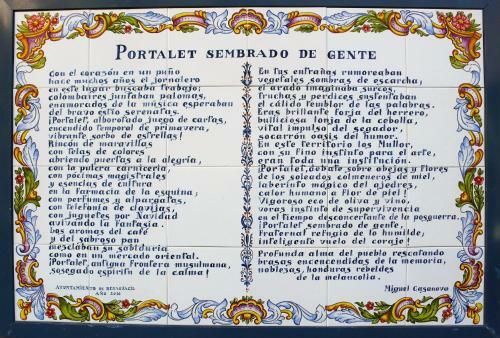 PORTALET SEMBRADO DE GENTE
Con el corazón en un puño
hace muchos años el jornalero
en este lugar buscaba trabajo;
colombaires juntaban palomas,
enamorados de la música esperaban
del bravo estío serenatas.
¡Portalet, alborotado juego de cartas,
encendido temporal de primavera,
vibrante sorbo de estrellas!
Rincón de maravillas
con telas de colores
abriendo puertas a la alegría,
con la pulcra carnicería,
con pócimas magistrales
y esencias de cultura
en la farmacia de la esquina;
con perfumes y alpargatas,
con telefonía de clavijas,
con juguetes por Navidad
avivando la fantasía.
Los aromas del café
y del sabroso pan
mezclaban su sabiduría
como en un mercado oriental.
¡Portalet, antigua frontera musulmana,
sosegado espíritu de la calma!
AYUNTAMIENTO DE BENETÚSSER
AÑO 2014
En tus entrañas rumoreaban
vegetales sombras de escarcha;
el arado imaginaba surcos,
truchas y perdices sustentaban
el cálido temblor de las palabras.
Eras brillante forja del herrero,
bulliciosa lonja de la cebolla,
vital impulso del segador,
socarrón oasis del humor.
En este territorio los Mullor,
con su fino instinto para el arte,
eran toda una institución.
¡Portalet, debate sobre ovejas y flores
de los soleados colmeneros de miel,
laberinto mágico del ajedrez,
calor humano a flor de piel!
Vigoroso eco de olivo y vino,
voraz instinto de supervivencia
en el tiempo desconcertante de la posguerra.
¡Portalet sembrado de gente,
fraternal refugio de lo humilde,
inteligente vuelo del coraje!
Profunda alma del pueblo rescatando
brasas encendidas de la memoria,
noblesas, honduras rebeldes
de la melancolía.
Miguel Casanova